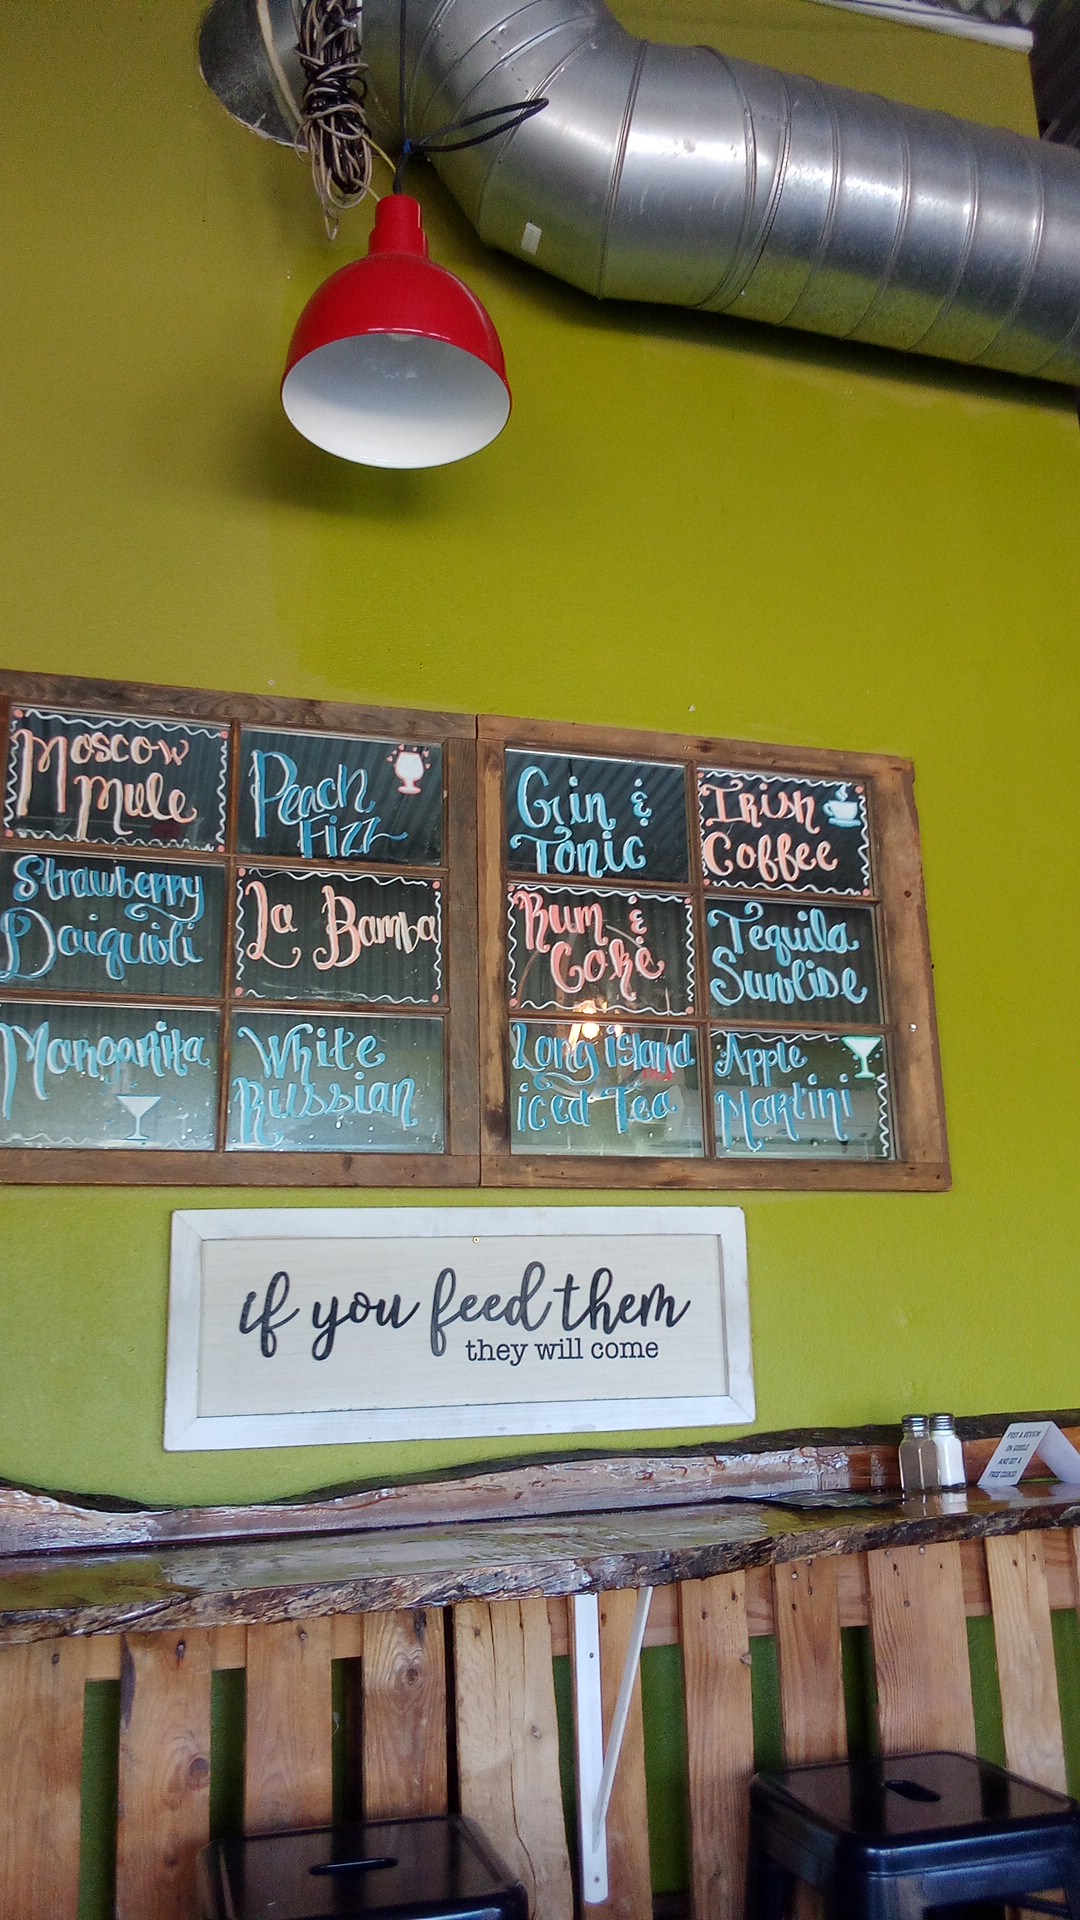 Moscow
Mule
Peach
Fizz
Strawberry
Daiquiri
La Bamba
Margarita
White
Russian
Gin &
Tonic
Irish
Coffee
Rum &
Coke
Tequila
Sunrise
Long island
iced Tea
Apple
Martini
if you feed them
they will come
POST A REVIEW
ON GOOGLE
AND GET A
FREE COOKIE!